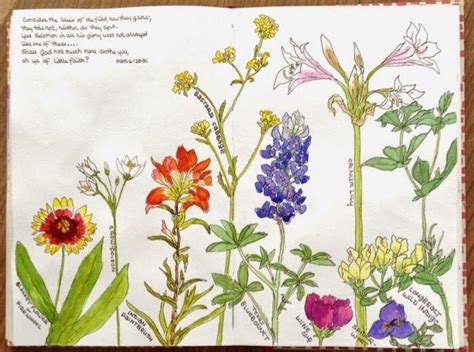 Consider the lilies of the field, how they grow;
they toil not, neither do they spin.
Yet Solomon in all his glory was not arrayed
like one of these....
Shall God not much more clothe you,
oh ye of little faith? Matt. 6:28-31
BASTARD CABBAGE
CRINUM LILY
INDIAN
PAINTBRUSH
TEXAS
BLUEBONNET
WINE
CUP
LONGBRACT
WILD INDIGO